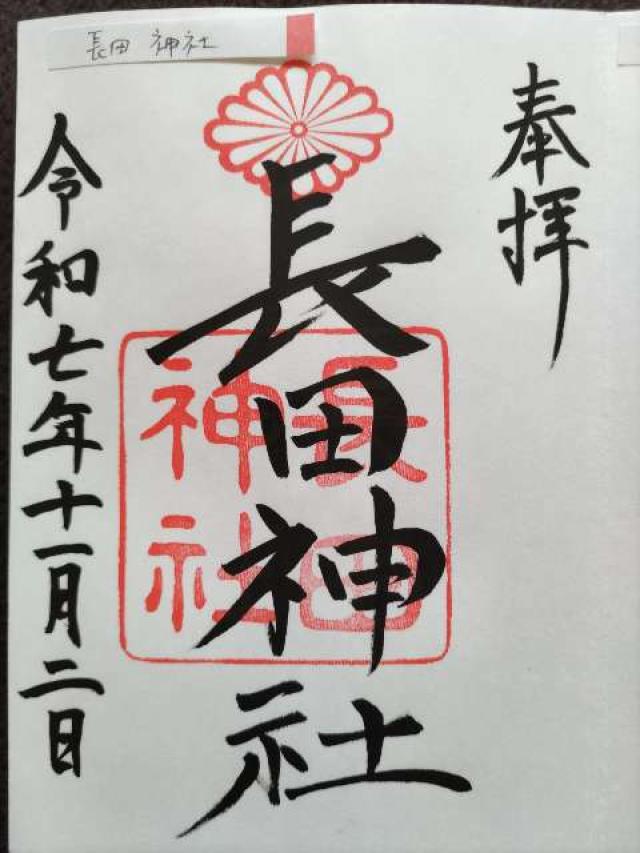 長田 神社
奉拝
長田神社
長田神社
令和七年十一月二日